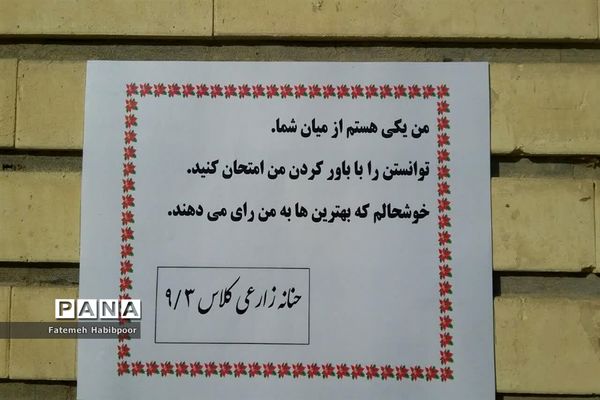 من یکی هستم از میان شما.
توانستن را با باور کردن من امتحان کنید.
خوشحالم که بهترین ها به من رای می دهند.
حنانه زارعی کلاس ۹/۳
PANA
Fatemeh Habibpoor